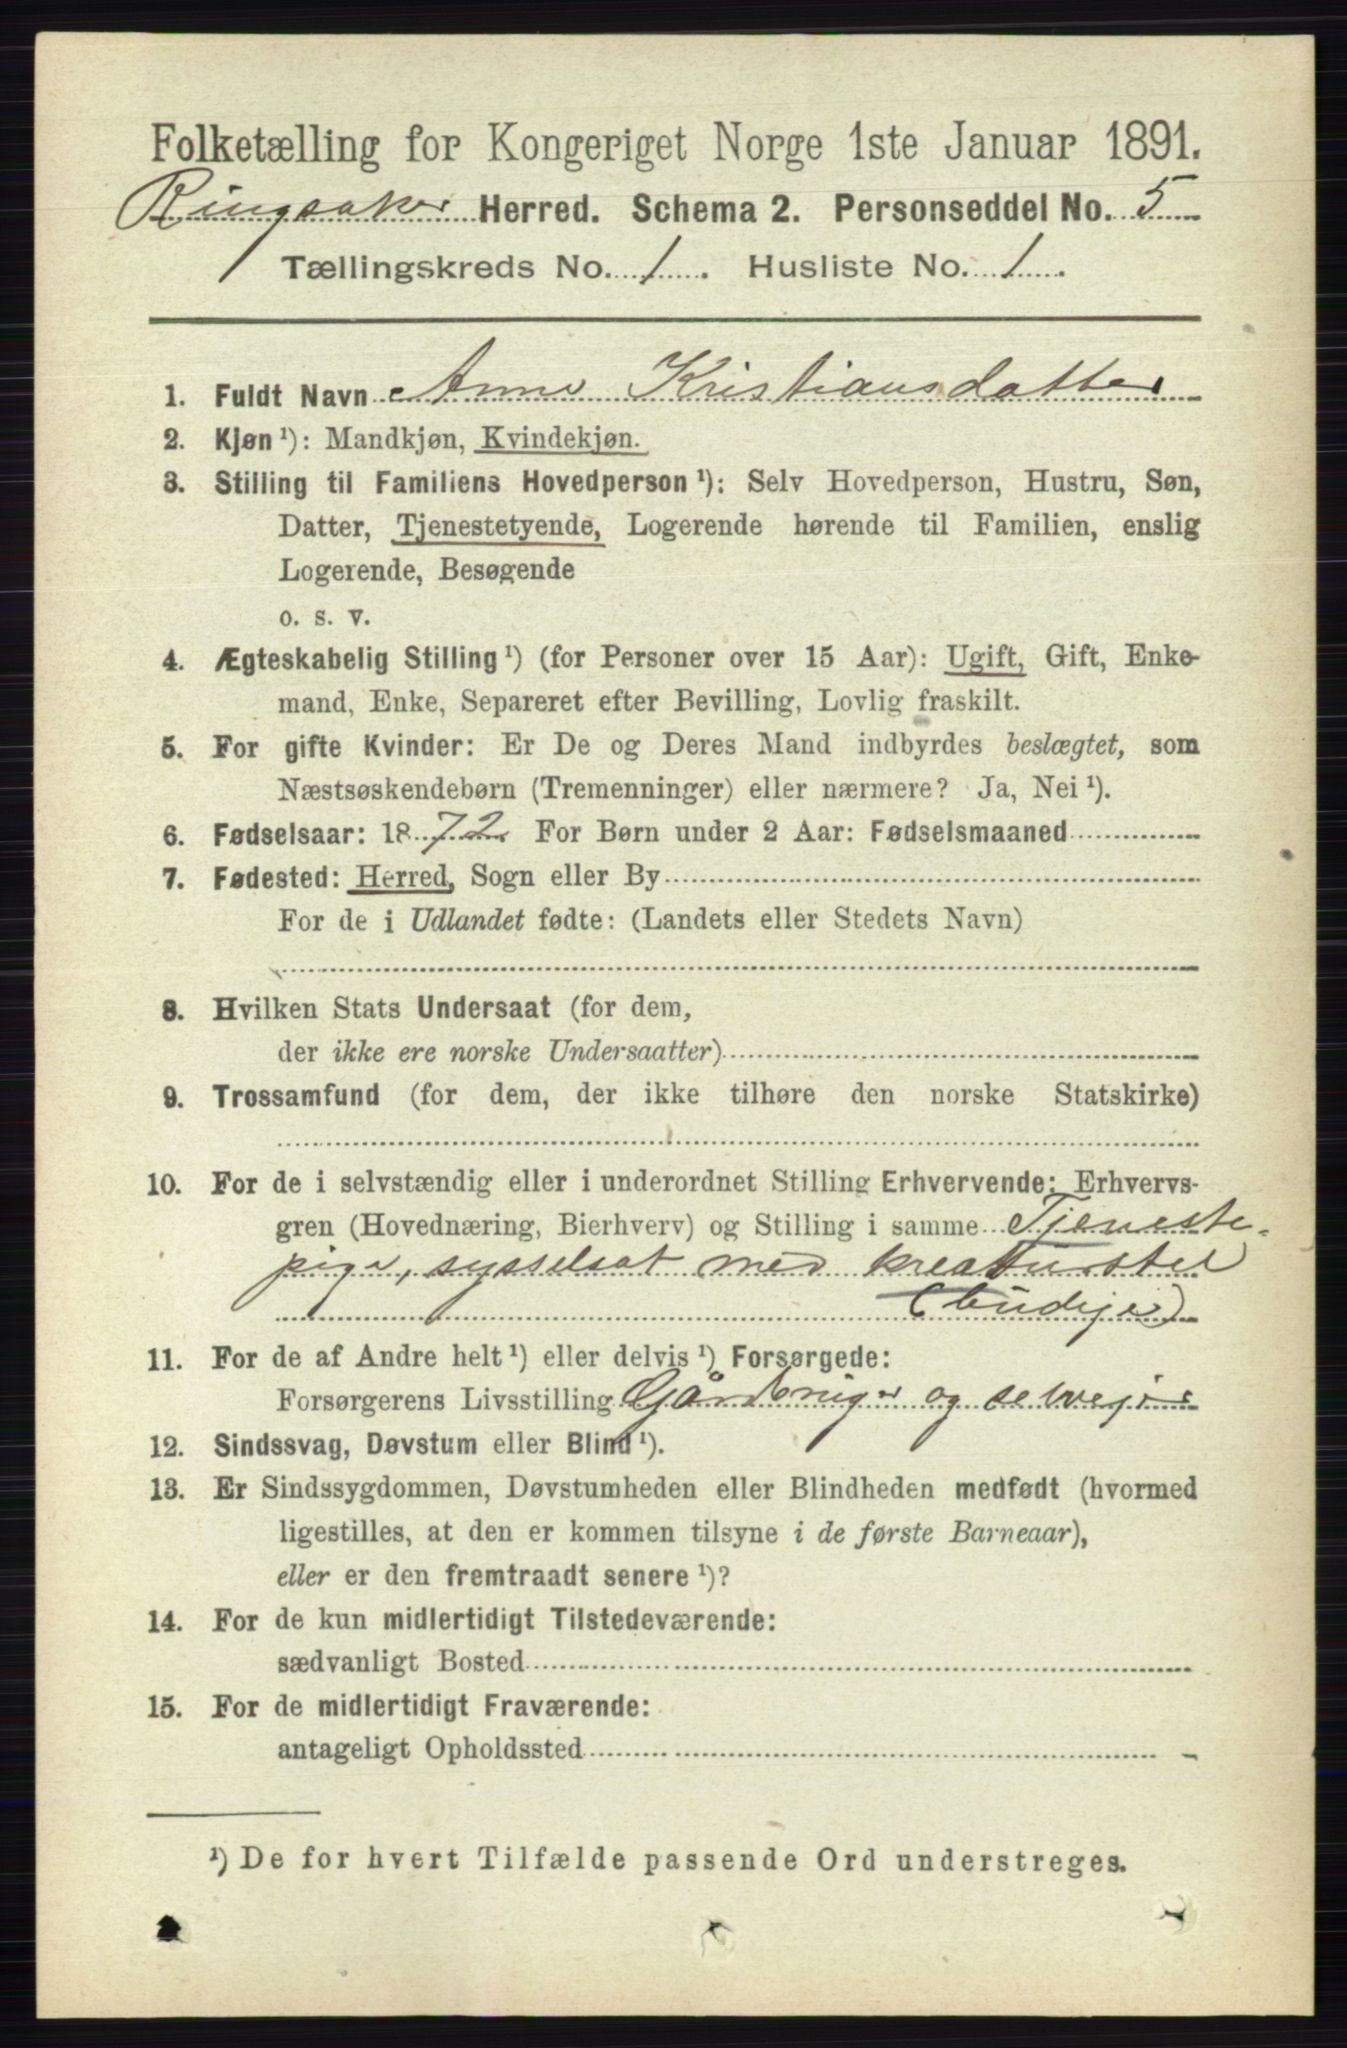 Folketælling for Kongeriget Norge 1ste Januar 1891.
Ringsaker Herred. Schema 2. Personseddel No. 5
Tællingskreds No. 1. Husliste No. 1.
1. Fuldt Navn Anne Kristiansdatter
2. Kjøn ¹): Mandkjøn, Kvindekjøn.
3. Stilling til Familiens Hovedperson ¹): Selv Hovedperson, Hustru, Søn,
Datter, Tjenestetyende, Logerende hørende til Familien, enslig
Logerende, Besøgende
o. s. v.
4. Ægteskabelig Stilling ¹) (for Personer over 15 Aar): Ugift, Gift, Enke-
mand, Enke, Separeret efter Bevilling, Lovlig fraskilt.
5. For gifte Kvinder: Er De og Deres Mand indbyrdes beslægtet, som
Næstsøskendebørn (Tremenninger) eller nærmere? Ja, Nei ¹).
6. Fødselsaar: 1872. For Børn under 2 Aar: Fødselsmaaned
7. Fødested: Herred, Sogn eller By
For de i Udlandet fødte: (Landets eller Stedets Navn)
8. Hvilken Stats Undersaat (for dem,
der ikke ere norske Undersaatter)
9. Trossamfund (for dem, der ikke tilhøre den norske Statskirke)
10. For de i selvstændig eller i underordnet Stilling Erhvervende: Erhvervs-
gren (Hovednæring, Bierhverv) og Stilling i samme Tjeneste-
pige, sysselsat med kreaturstel
(budeje)
11. For de af Andre helt ¹) eller delvis ¹) Forsørgede:
Forsørgerens Livsstilling Gårdbruger og selvejer
12. Sindssvag, Døvstum eller Blind ¹).
13. Er Sindssygdommen, Døvstumheden eller Blindheden medfødt (hvormed
ligestilles, at den er kommen tilsyne i de første Barneaar),
eller er den fremtraadt senere ¹)?
14. For de kun midlertidigt Tilstedeværende:
sædvanligt Bosted
15. For de midlertidigt Fraværende:
antageligt Opholdssted
¹) De for hvert Tilfælde passende Ord understreges.